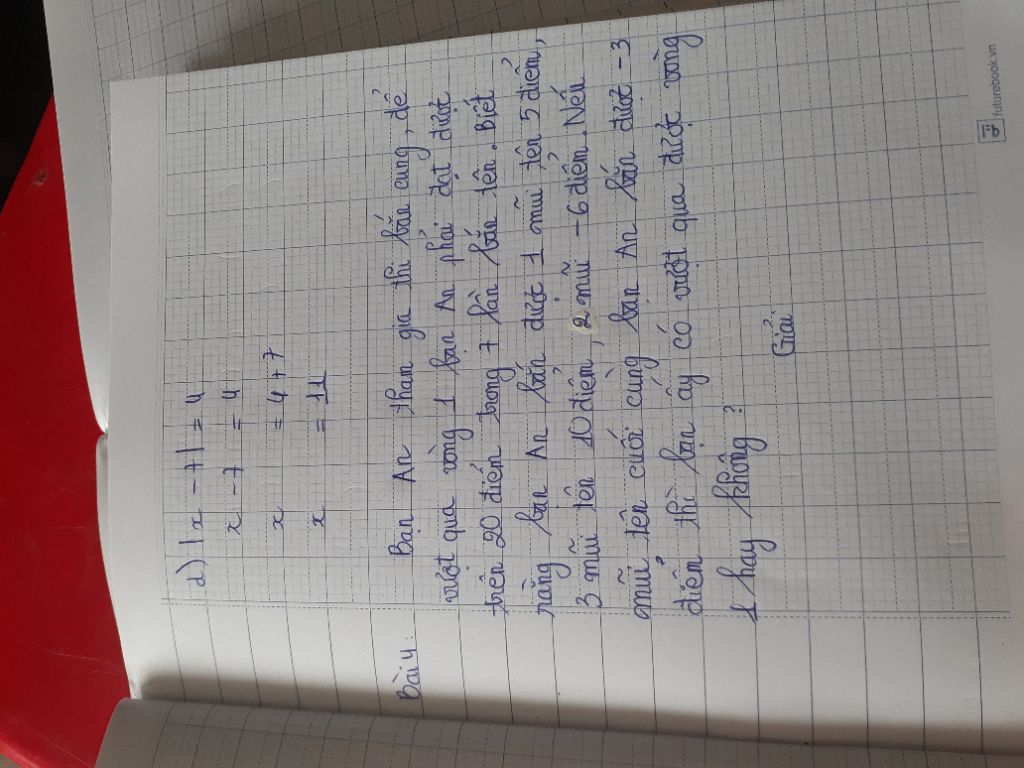 d) |x - 7| = 4
x - 7 = 4
x = 4 + 7
x = 11
Bài 4: Bạn An tham gia thi bắn cung, để
vượt qua vòng 1 bạn An phải đạt được
trên 20 điểm trong 7 lần bắn tên. Biết
rằng bạn An bắn được 1 mũi tên 5 điểm,
3 mũi tên 10 điểm, 2 mũi -6 điểm. Nếu
mũi tên cuối cùng bạn An bắn được -3
điểm thì bạn ấy có vượt qua được vòng
1 hay không?
Giải
futurebook.vn